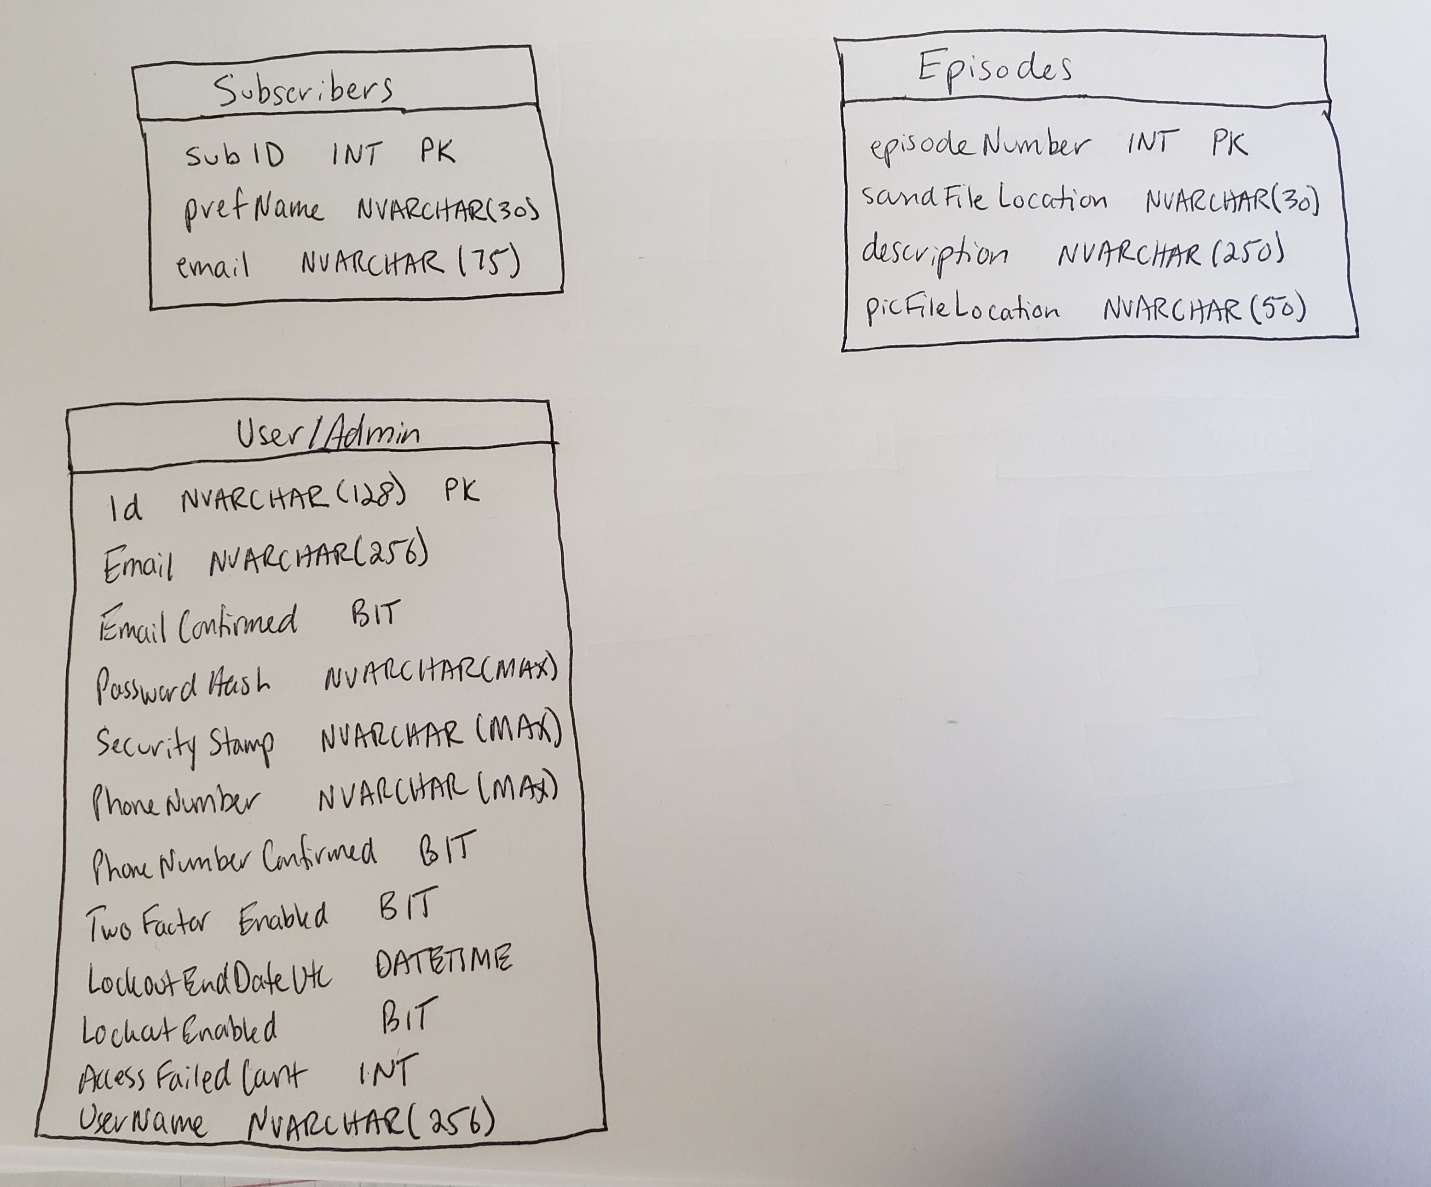 Subscribers
subID INT PK
prefName NVARCHAR(30)
email NVARCHAR (75)
Episodes
episodeNumber INT PK
soundFileLocation NVARCHAR(30)
description NVARCHAR (250)
picFileLocation NVARCHAR (50)
User/Admin
Id NVARCHAR(128) PK
Email NVARCHAR(256)
Email Confirmed BIT
Password Hash NVARCHAR(MAX)
Security Stamp NVARCHAR (MAX)
PhoneNumber NVARCHAR (MAX)
Phone Number Confirmed BIT
Two Factor Enabled BIT
LockoutEndDateUtc DATETIME
LockoutEnabled BIT
Access Failed Count INT
UserName NVARCHAR(256)